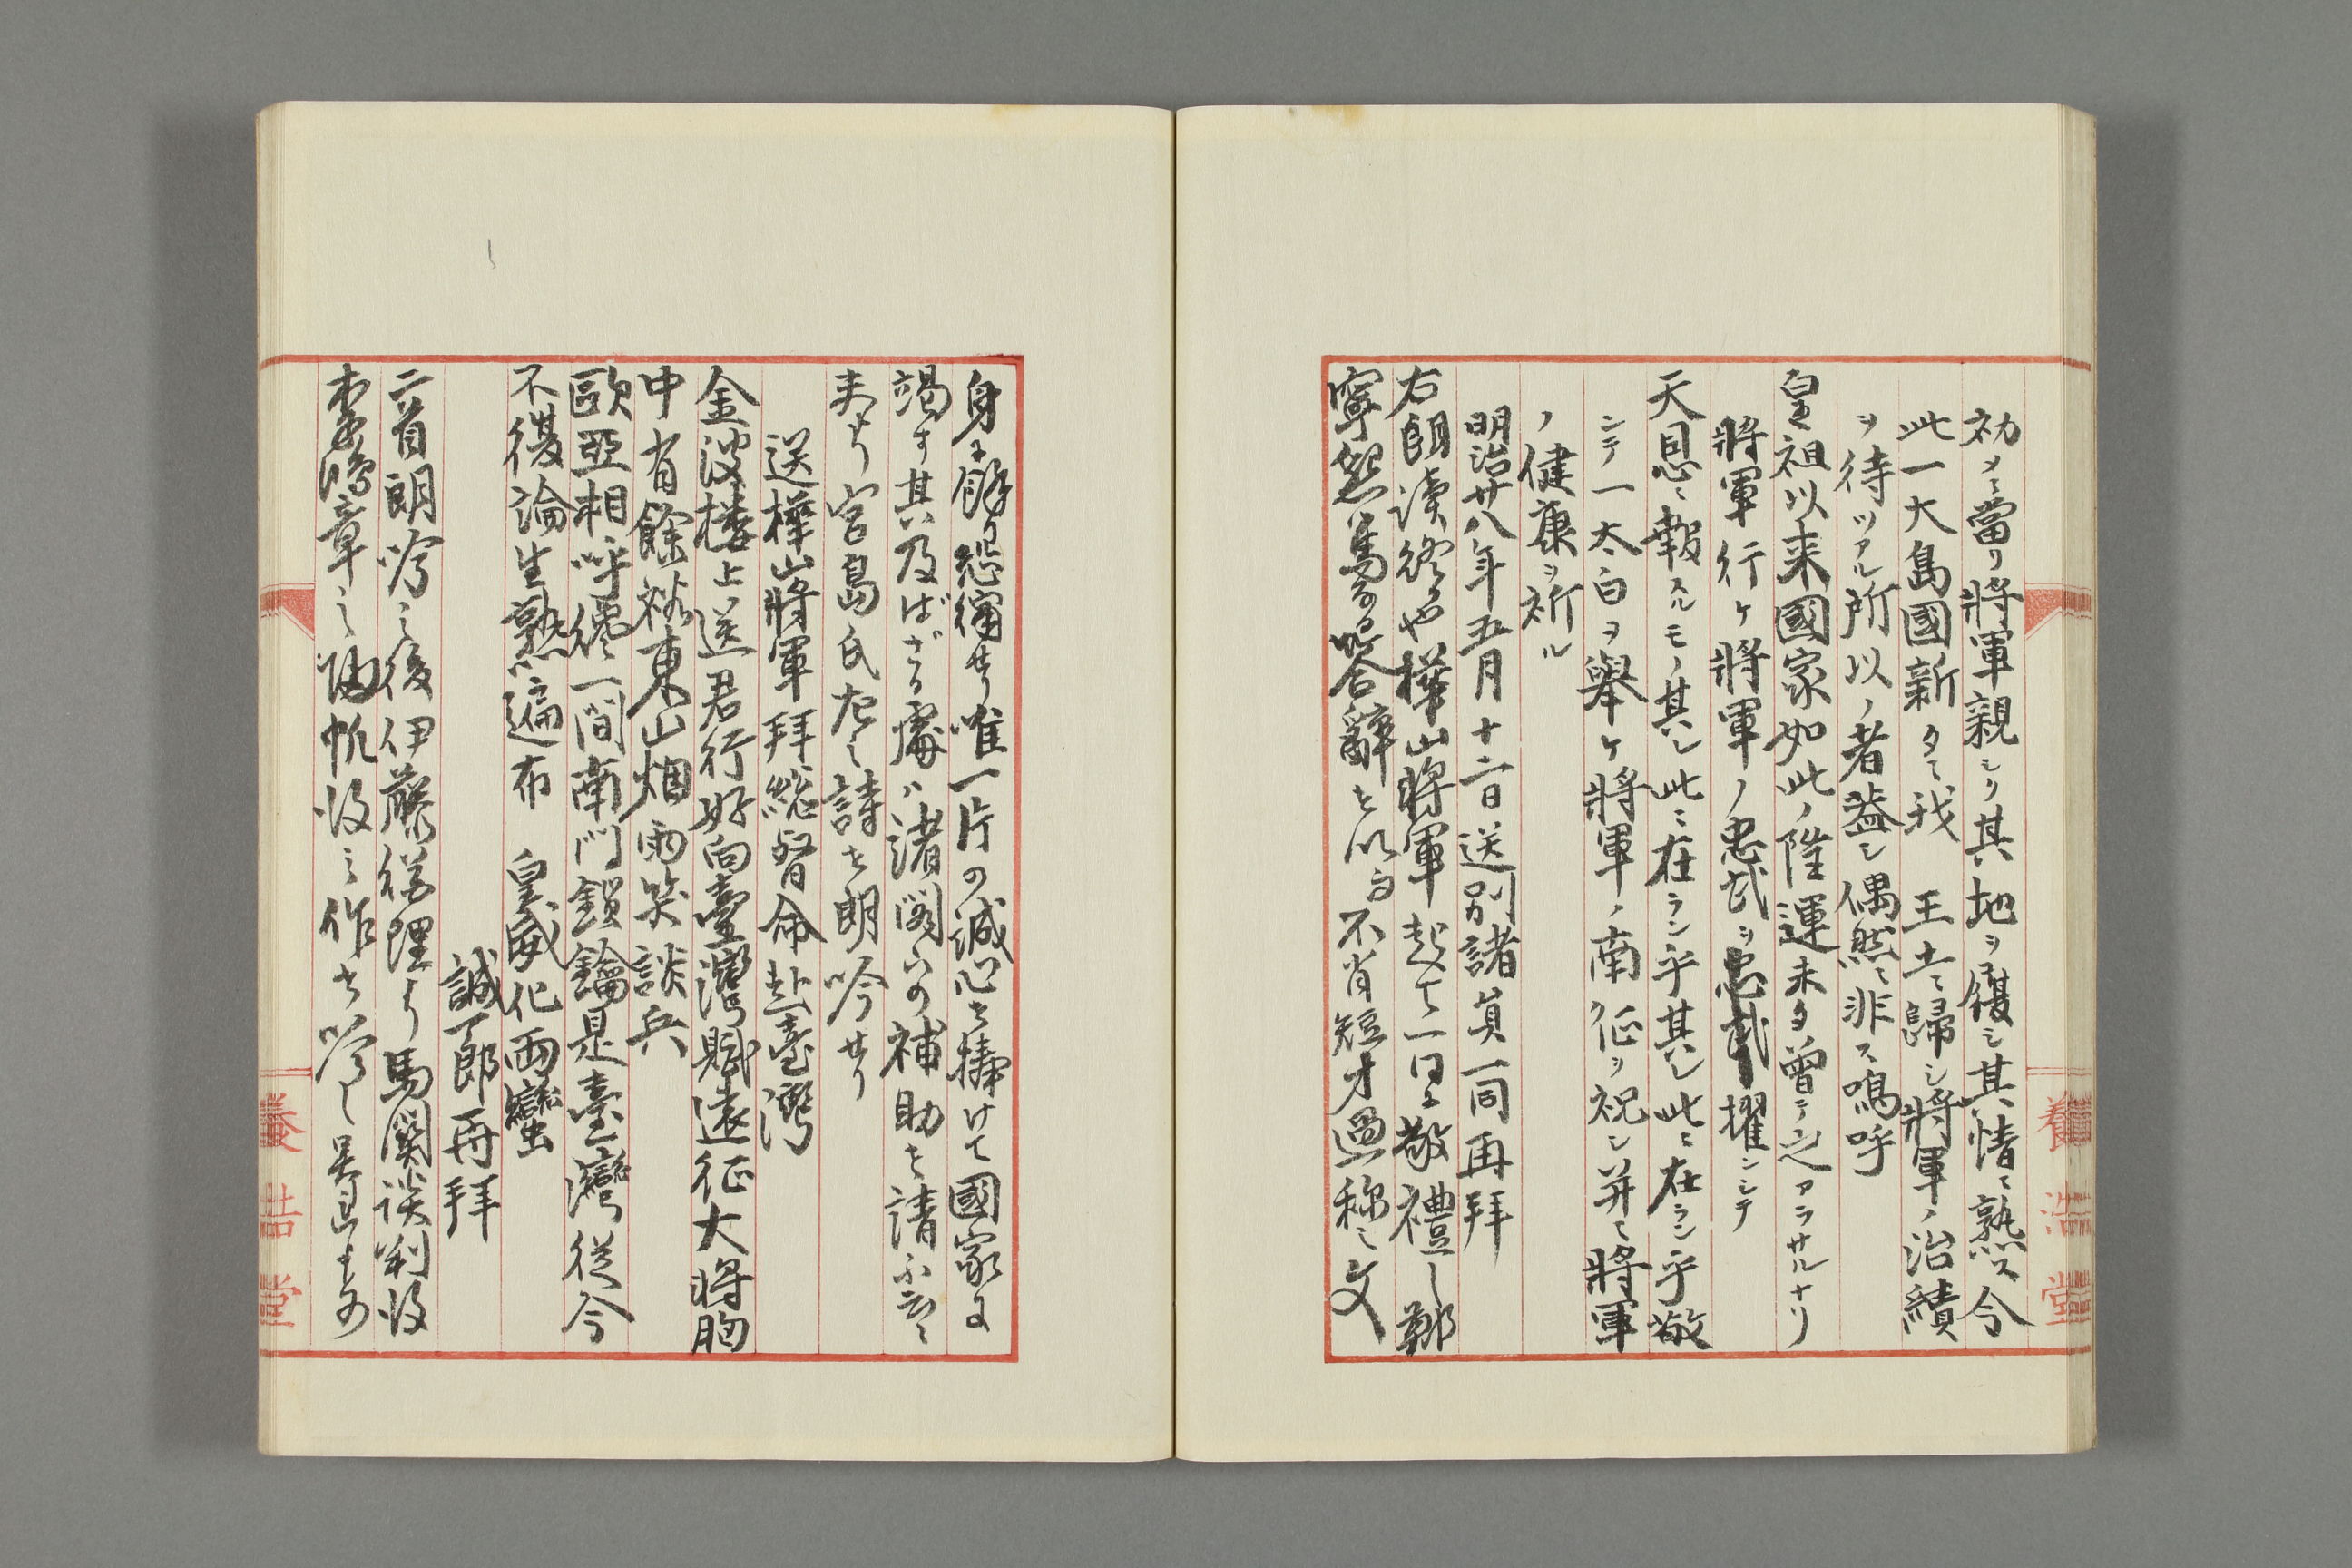 効ノニ當リ將軍親シク其地ヲ履ミ其情ニ熟ス今
此一大島國新タニ我　王土ニ歸シ將軍ノ治績
ヲ待ツアル所以ノ者蓋シ偶然ニ非ス嗚呼
皇祖以来國家如此ノ隆運未タ曽テ之アラサルナリ
將軍行ケ將軍ノ忠武ヲ擢ンシテ
天恩ニ報スルモノ其レ此ニ在ラン乎其レ此ニ在ラン乎敬
シテ一太白ヲ舉ケ將軍ノ南征ヲ祝シ并ニ將軍
ノ健康ヲ祈ル
明治廿八年五月十二日送別諸員一同再拜
右朗讀終るや樺山將軍起て一同に敬禮し鄭
寧懇篤なる答辭を以て不肖短才過稱之文
身に餘り唯一片の誠心を捧けて國家に
竭す其及ばざる處ハ諸閣下の補助を請ふ云々
夫より宮島氏左之詩を朗吟せり
送樺山將軍拜総督命赴臺灣
金波楼上送君行好向臺灣賦遠征大將胸
中有餘裕東山烟雨笑談兵
歐亞相呼纔一間南門鎖鑰是臺灣從今
不復論生熟遍布　皇威化両蠻
誠一郎再拜
二首朗吟之後伊藤総理より馬関談判後
李鴻章之帰帆後之作を吟し
養浩堂
養浩堂